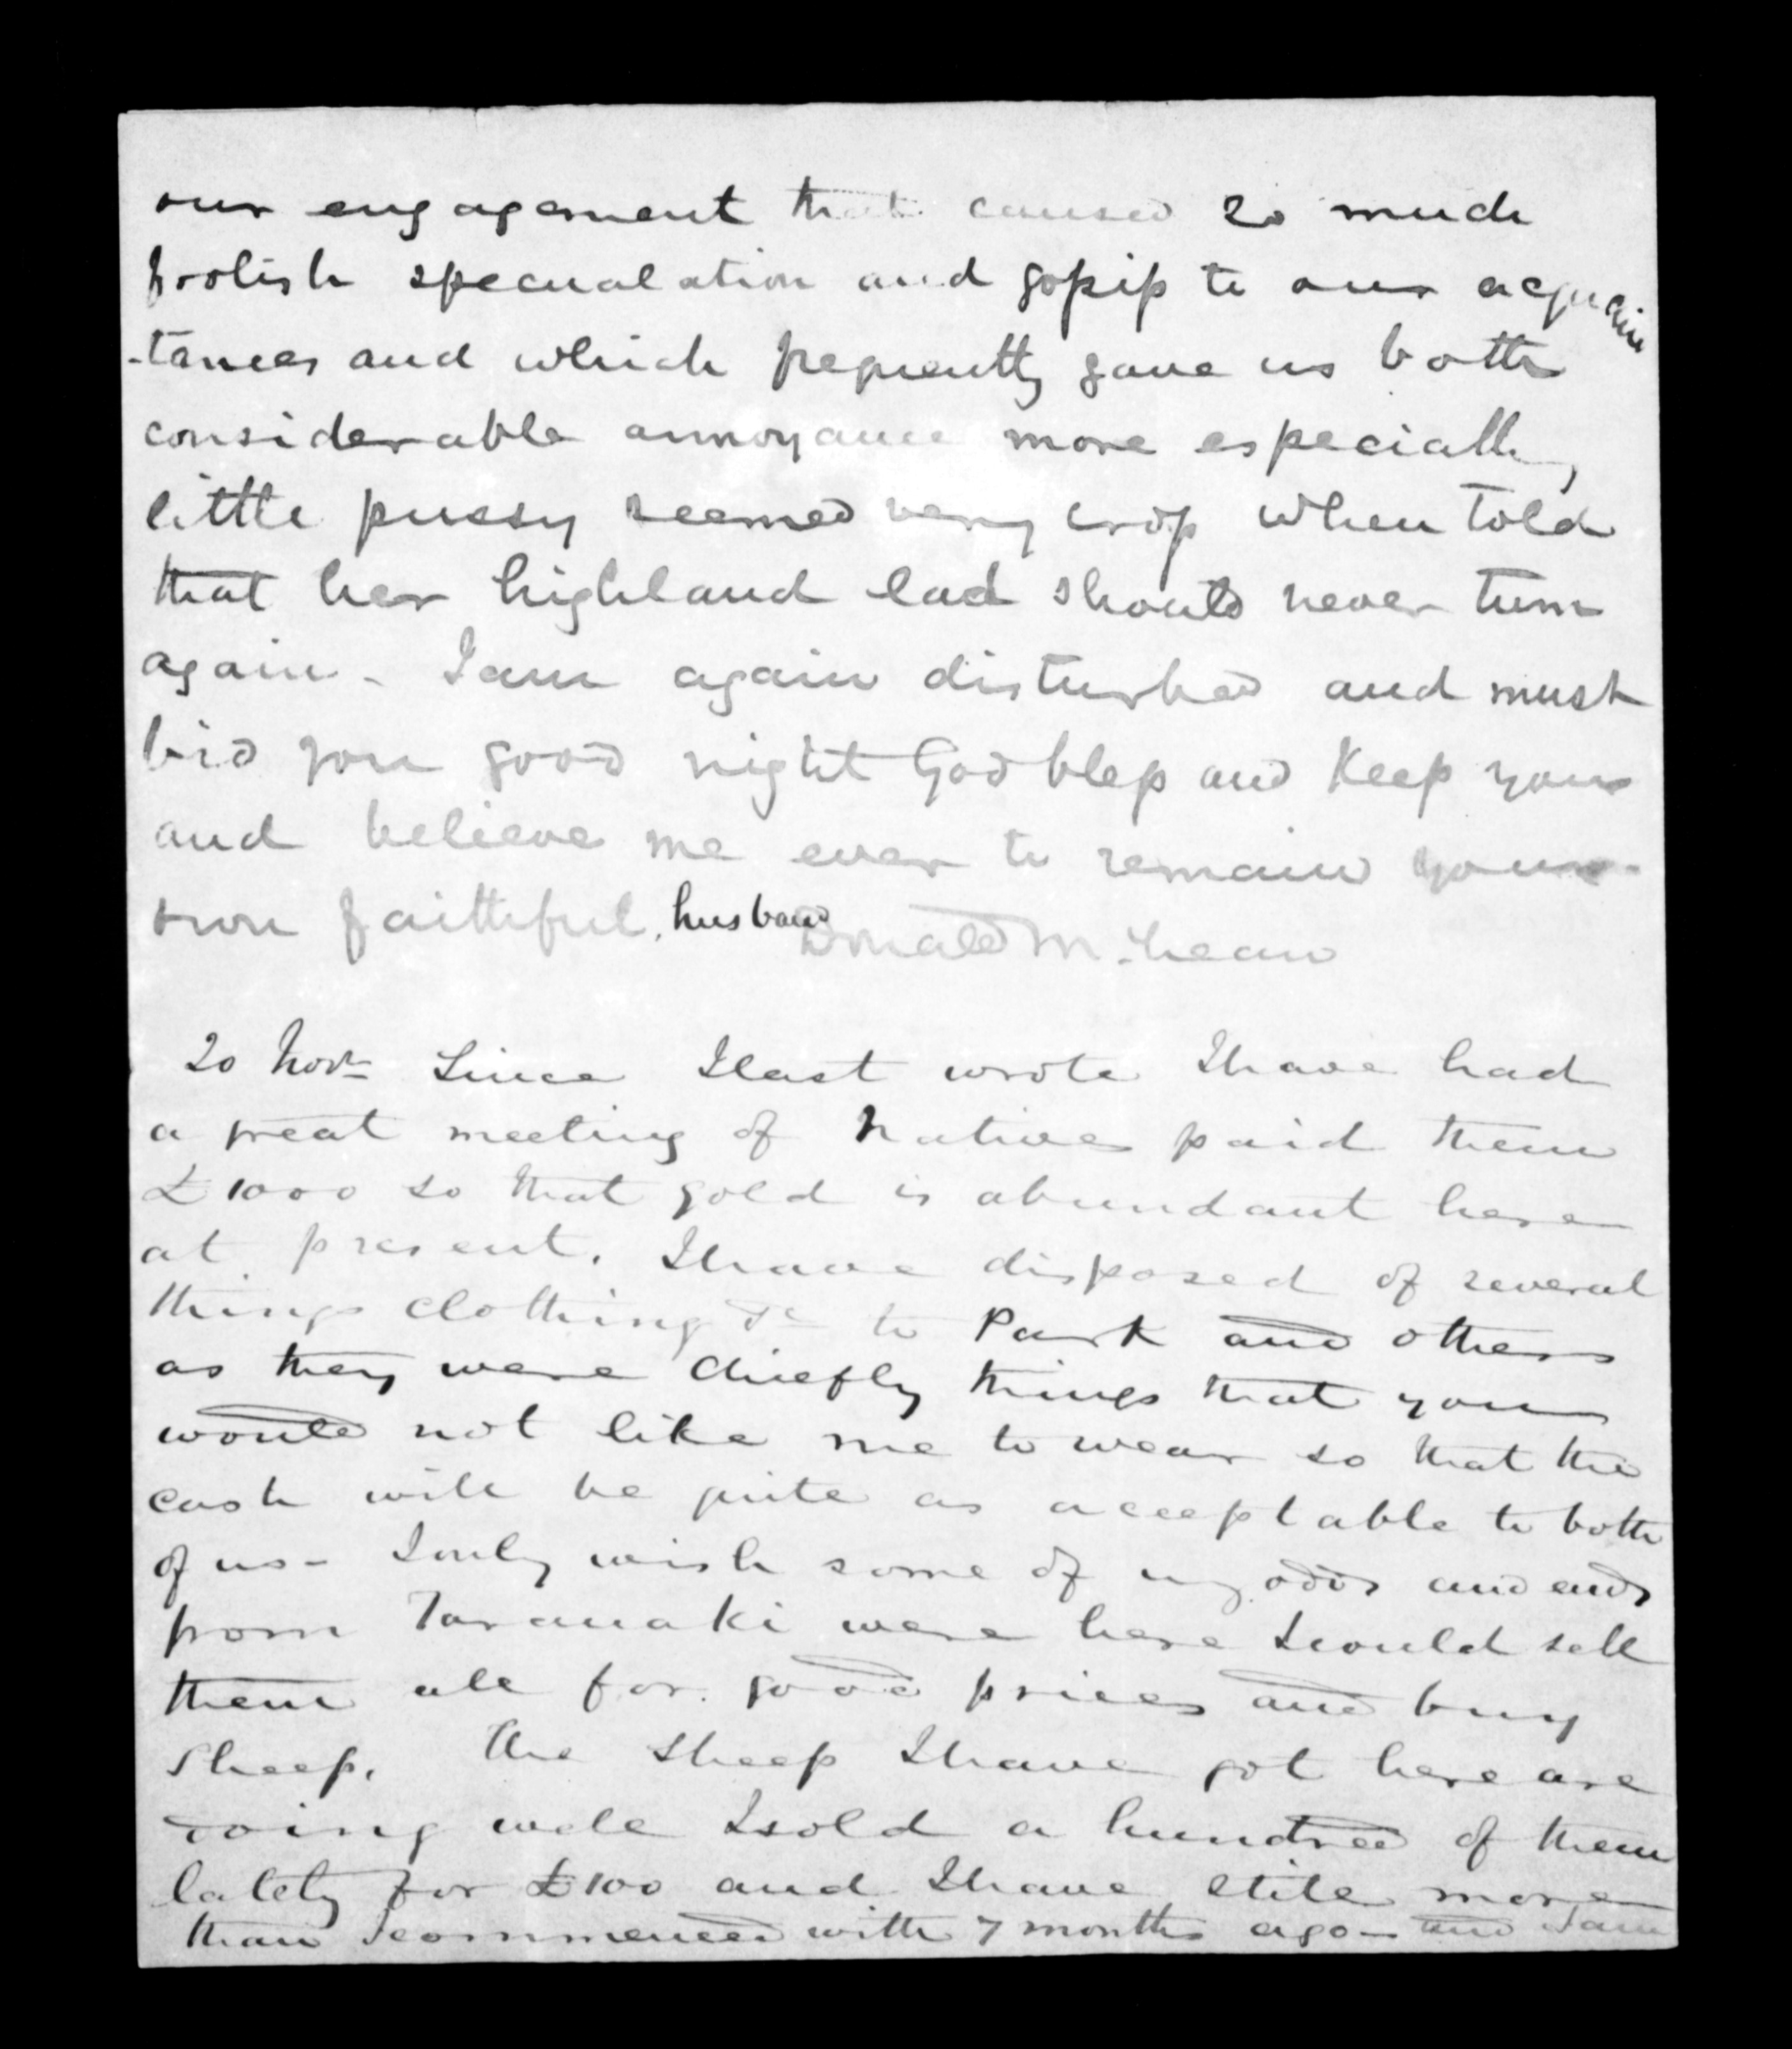 our engagement that caused so much
foolish specualation and gossip to our acquain
-tances and which frequently gave us both
considerable annoyance more especially
little pussy seemed very cross when told
that her highland lad should never turn
again - I am again disturbed and must
bid you good night God bless and keep you
and believe me ever to remain your
own faithful, husband Donald McLean
20 Novr Since I last wrote I have had
a great meeting of Natives paid them
£1000 so that gold is abundant here
at present. I have disposed of several
things clothing &c to Park and others
as they were chiefly things that you
would not like me to wear so that the
cash will be quite as acceptable to both
of us - I only wish some of my odds and ends
from Taranaki were here I could sell
them all for good prices and buy
sheep. The sheep I have got here are
doing well I sold a hundred of them
lately for £100 and I have still more
than I commenced with 7 months ago - and I am